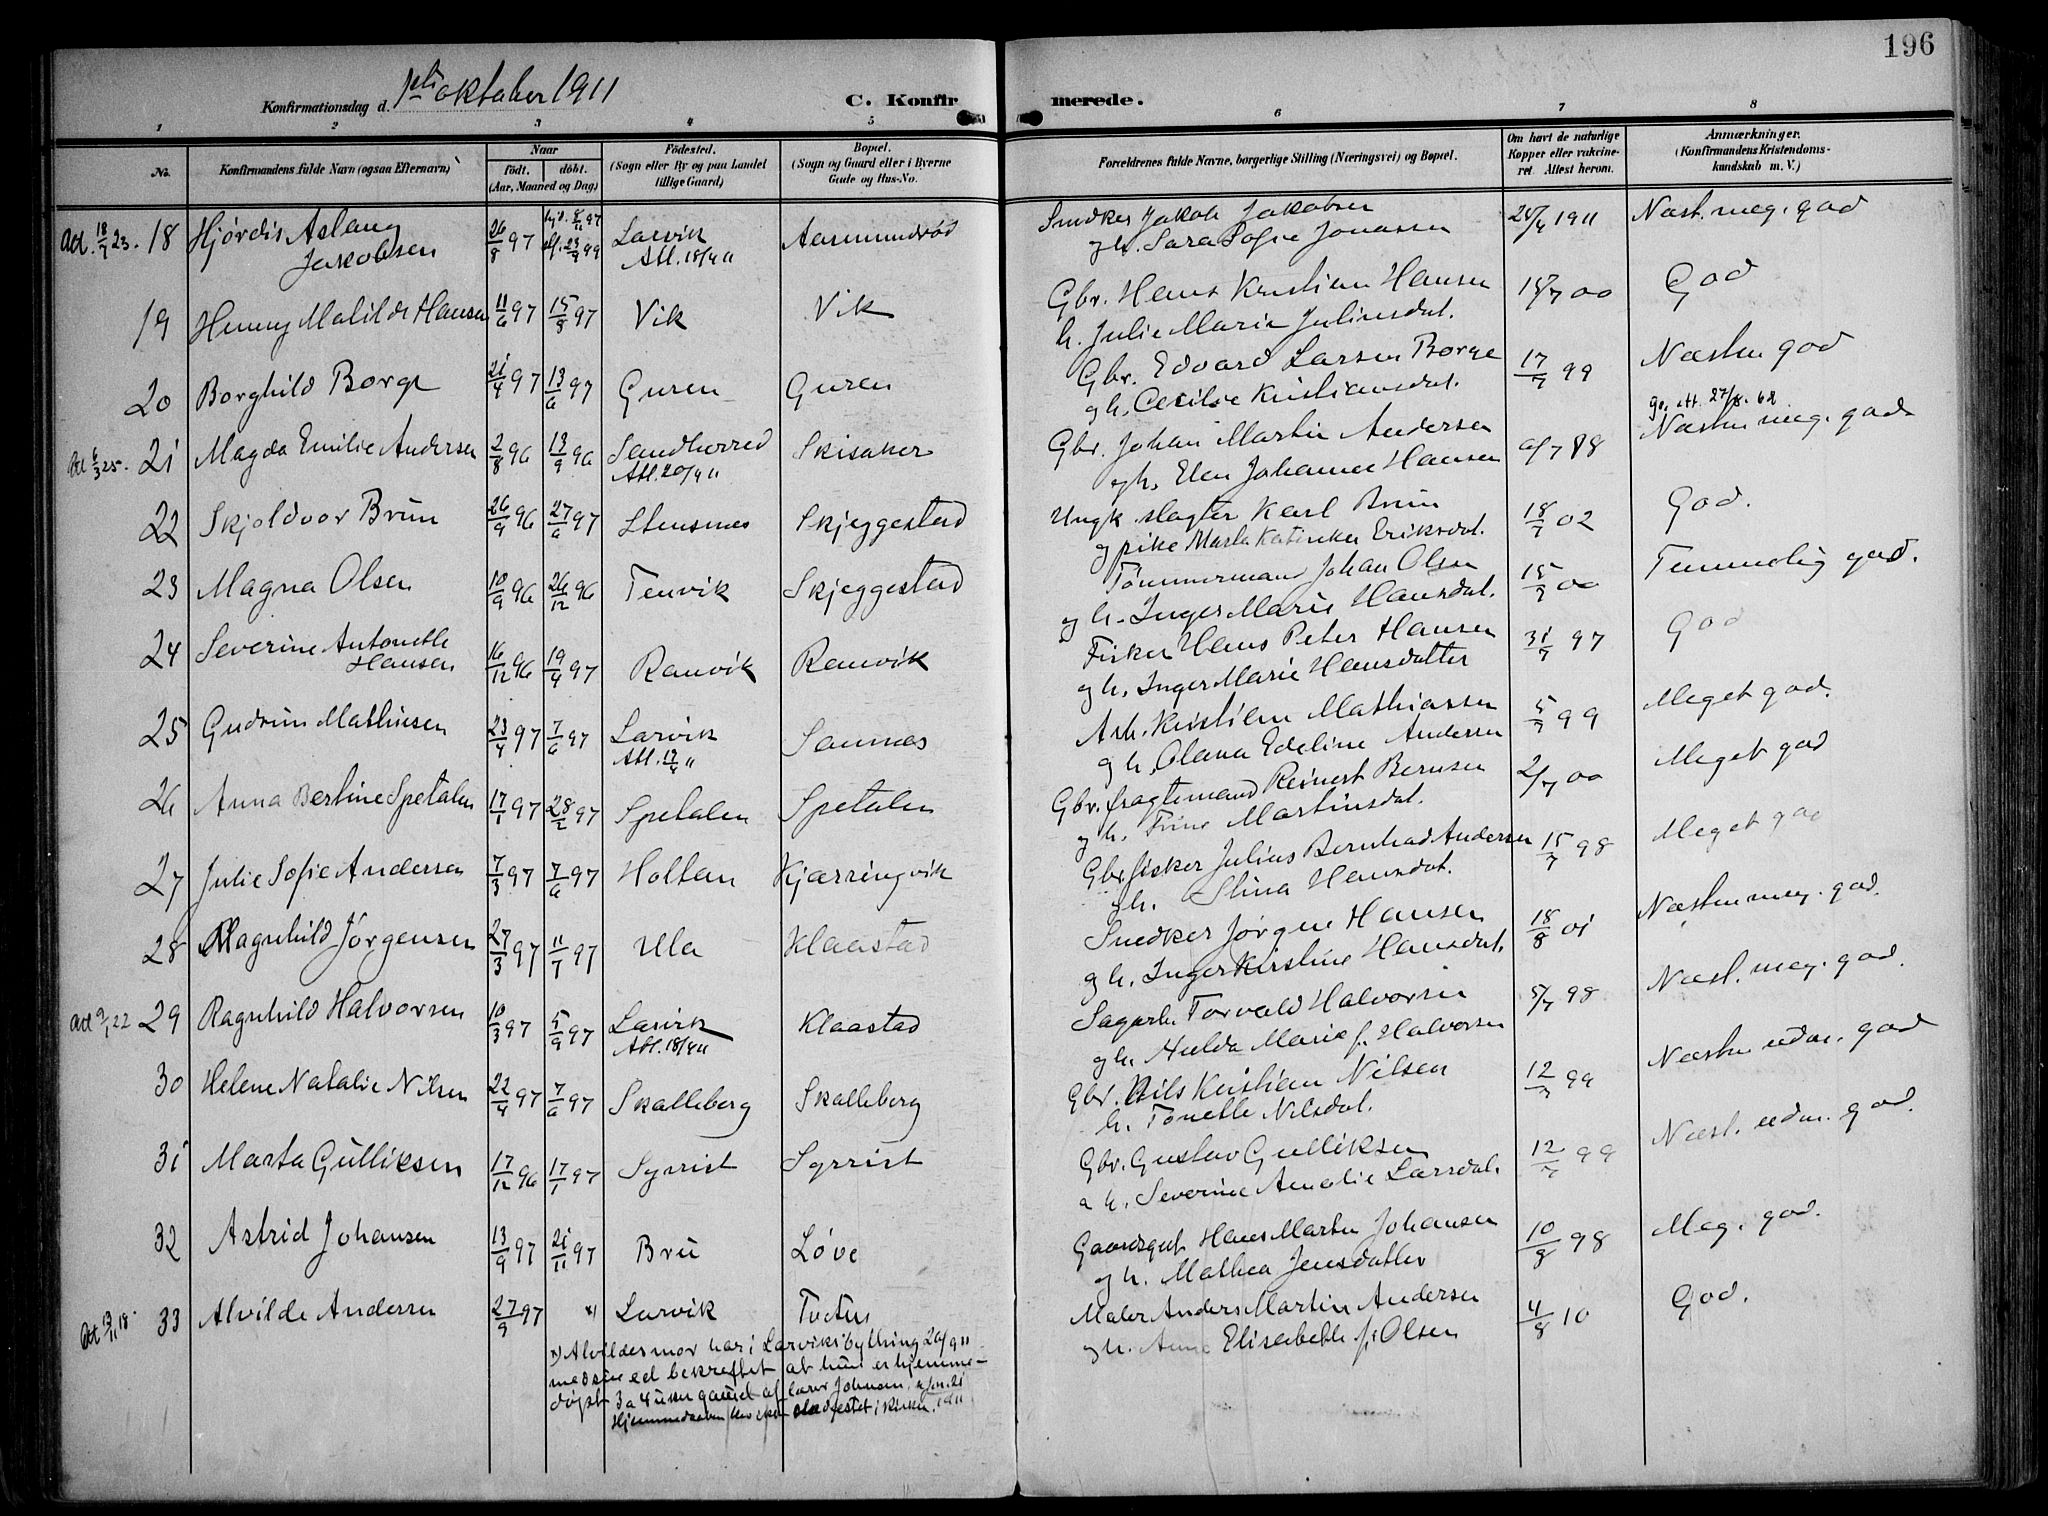 196
Konfirmationsdag d. 1ste oktober 1911
C. Konfirmerede.
1 2 3 4 5 6 7 8
No.
Konfirmandens fulde Navn (ogsaa Efternavn)
Naar
født. døbt.
(Aar, Maaned og Dag)
Fødested.
(Sogn eller By og paa Landet
tillige Gaard)
Bopæl.
(Sogn og Gaard eller i Byerne
Gade og Hus-No.
Forældrenes fulde Navne, borgerlige Stilling (Næringsvei) og Bopæl.
Om havt de naturlige
Kopper eller vakcine-
ret. Attest herom.
Anmærkninger.
(Konfirmandens Kristendoms-
kundskab m. V.)
Att. 18/7 23. 18 Hjørdis Aslaug 26/8 97 Larvik Aasmundrød Snedker Jakob Jakobsen 1911 Næst. meg. god
Jakobsen Att. 18/9 11 og h. Sara Sofie Jonassen
19 Henny Matilde Hansen 11/6 97 15/8 97 Vik Vik Gbr. Hans Kristian Hansen 18/7 00 God
h. Julie Marie Juliusdat.
20 Borghild Borge 21/4 97 13/6 97 Guren Guren Gbr. Edvard Larsen Borge 17/7 99 Næsten god
og h. Cecilie Kristiansdat.
att. 27/8. 62
Att 6/3 25. 21 Magda Emilie Andersen 2/8 96 13/9 96 Sandherred Skisaker Gbr. Johan Martin Andersen Næsten meg. god
Att. 20/9 11 og h. Elen Johanne Hansen
22 Skjoldvor Brun 26/9 96 27/6 97 Stensnes Skjeggestad Ungk. slagter Karl Brun 18/7 02 God.
og pike Marta Katinka Eriksdat.
23 Magna Olsen 10/9 96 26/12 96 Tenvik Skjeggestad Tømmermand Johan Olsen 15/7 00 Temmelig god.
og h. Inger Marie Hansdat.
24 Severine Antonette 16/12 96 19/4 97 Ranvik Ranvik Fisker Hans Peter Hansen 31/7 97 God
Hansen og h. Inger Marie Hansdatter
25 Gudrun Mathiesen 23/4 97 7/6 97 Larvik Sannes Arb. Kristian Mathiassen 5/7 99 Meget god.
Att. 17/9 11 og h. Olava Edeline Andersen
26 Anna Bertine Spetalen 17/1 97 28/2 97 Spetalen Spetalen Gbr. fragtemand Reinert Bernsen 2/7 00 Meget god
og h. Trine Martinsdat.
27 Julie Sofie Andersen 7/3 97 7/6 97 Holtan Kjærringvik Gbr. fisker Julius Bernhad Andersen 15/7 98 Meget god
og h. Stina Hansdat.
28 Ragnhild Jørgensen 27/3 97 11/7 97 Ula Klaastad Snedker Jørgen Hansen 18/8 01 Næsten meg. god.
og h. Inger Kirstine Hansdat.
Att 9/1 22 29 Ragnhild Halvorsen 10/3 97 5/9 97 Larvik Klaastad Sagarb. Torvald Halvorsen 5/7 98 Næst. meg. god.
Att. 18/9 11 og h. Hulda Marie f. Halvorsen
30 Helene Natalie Nilsen 22/4 97 7/6 97 Skalleberg Skalleberg Gbr. Nils Kristian Nilsen 12/7 99 Næsten udm. god
h. Tonette Nilsdat.
31 Marta Gulliksen 17/12 96 17/1 97 Syrrist Syrrist Gbr. Gustav Gulliksen 12/7 99 Næst. udm. god.
a h. Severine Amalie Larsdat.
32 Astrid Johansen 13/9 97 21/11 97 Bru Løve Gaardsgut Hans Martin Johansen 10/8 98 Meg. god.
og h. Mathea Jensdatter
Att 19/11 18. 33 Alvilde Andersen 27/9 97 x) Larvik Tveten Maler Anders Martin Andersen 4/8 10 God.
og h. Anne Elisabeth f. Olsen
x) Alvildes mor har i Larviks bything 26/9 11
med sin ed bekreftet at hun er hjemme-
døpt 3 a 4 uker gammel af lærer Johansen.
Hjemmedaaben blev stadfestet i kirken. 1911